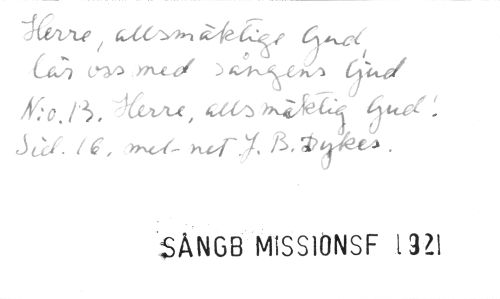 Herre, allsmäktige Gud,
lär oss med sångens ljud
N:o. 13. Herre, allsmäktig Gud!
Sid. 16. mel-not J. B. Dykes.
SÅNGB MISSIONSF 1921